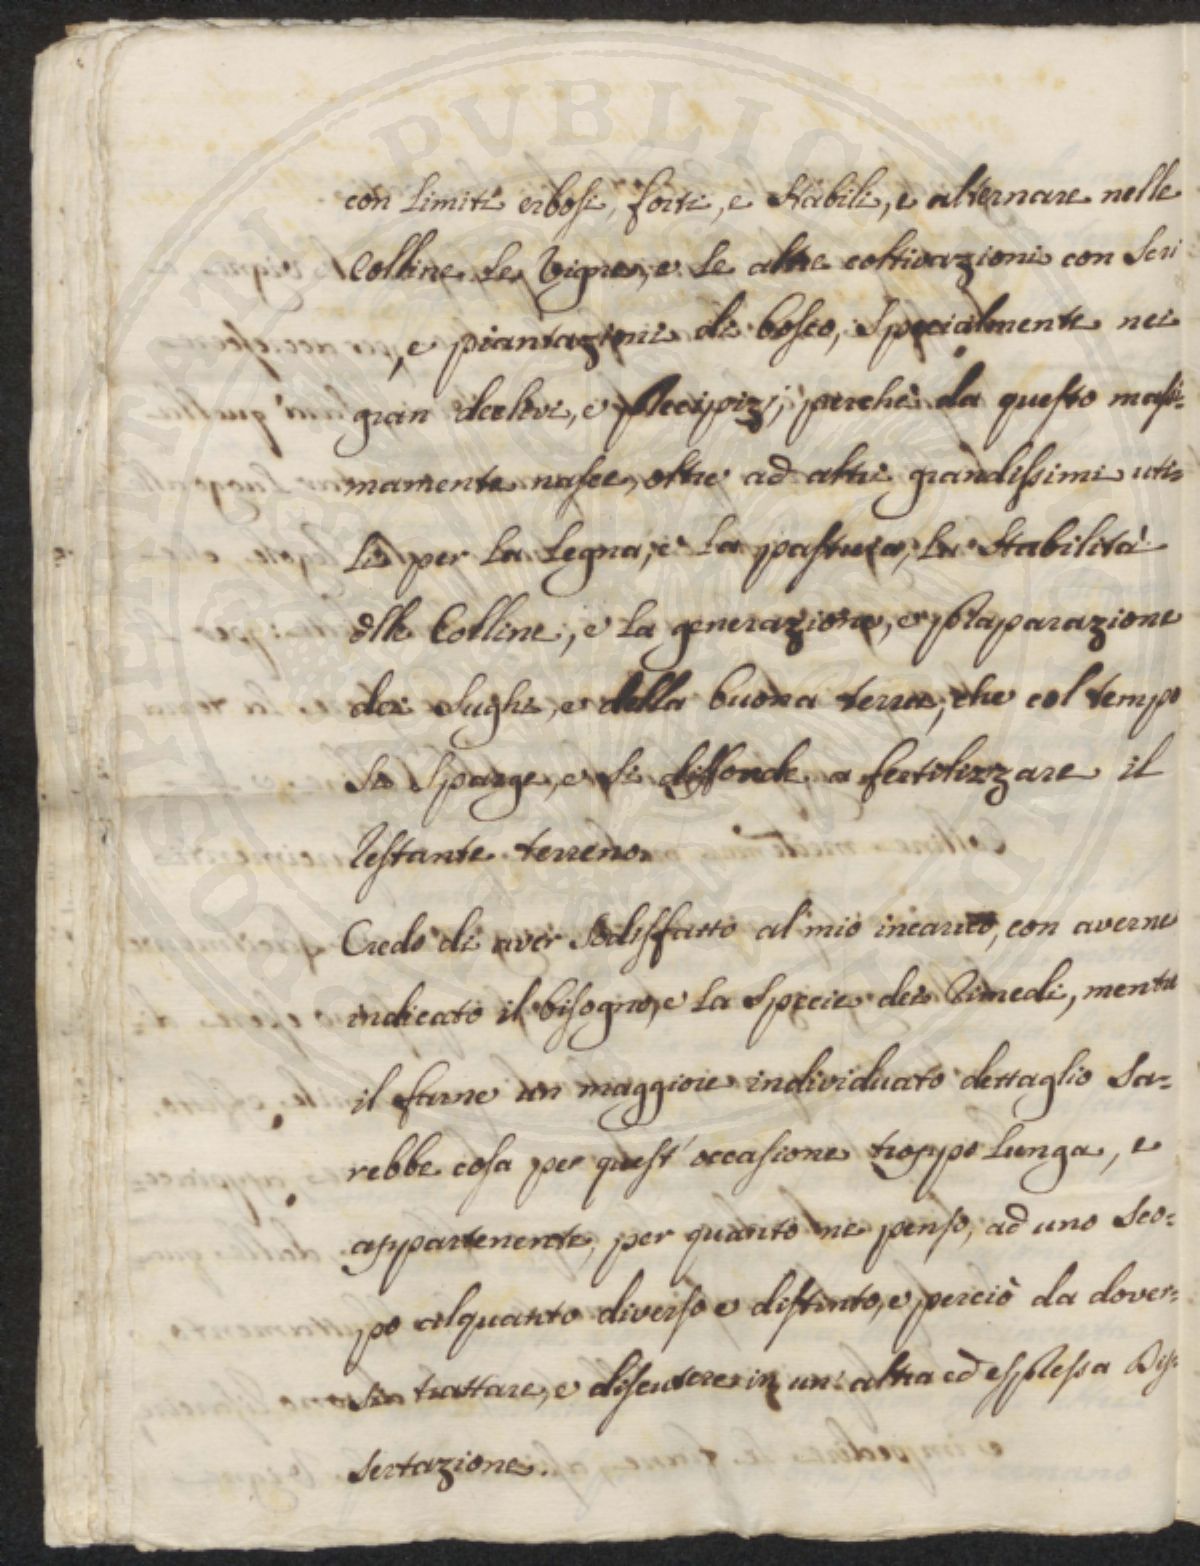 con limiti erbosi, forti, e stabili, e alternare nelle
Colline le Vigne, e le altre coltivazioni con seri
, e piantazioni di bosco, specialmente nei
gran declivi, e precipizj; perchè da questo massi=
mamente nasce, oltre ad altri grandissimi uti=
li per la legna, e la pastura, la stabilità
dlle Colline, e la generazione, e praparazione
dei sughi, e della buona terra, che col tempo
si sparge, e si diffonde a fertilizzare il
restante terreno.
Credo di aver sodisfatto al mio incarico, con averne
indicato il bisogno, e la specie dei rimedi, mentre
il farne un maggiore individuato dettaglio sa=
rebbe cosa per quest'occasione troppo lunga, e
appartenente, per quanto ne penso, ad uno sco=
po alquanto diverso e distinto, e perciò da dover=
si trattare, e discutere in un'altra ed espressa Dis=
sertazione.